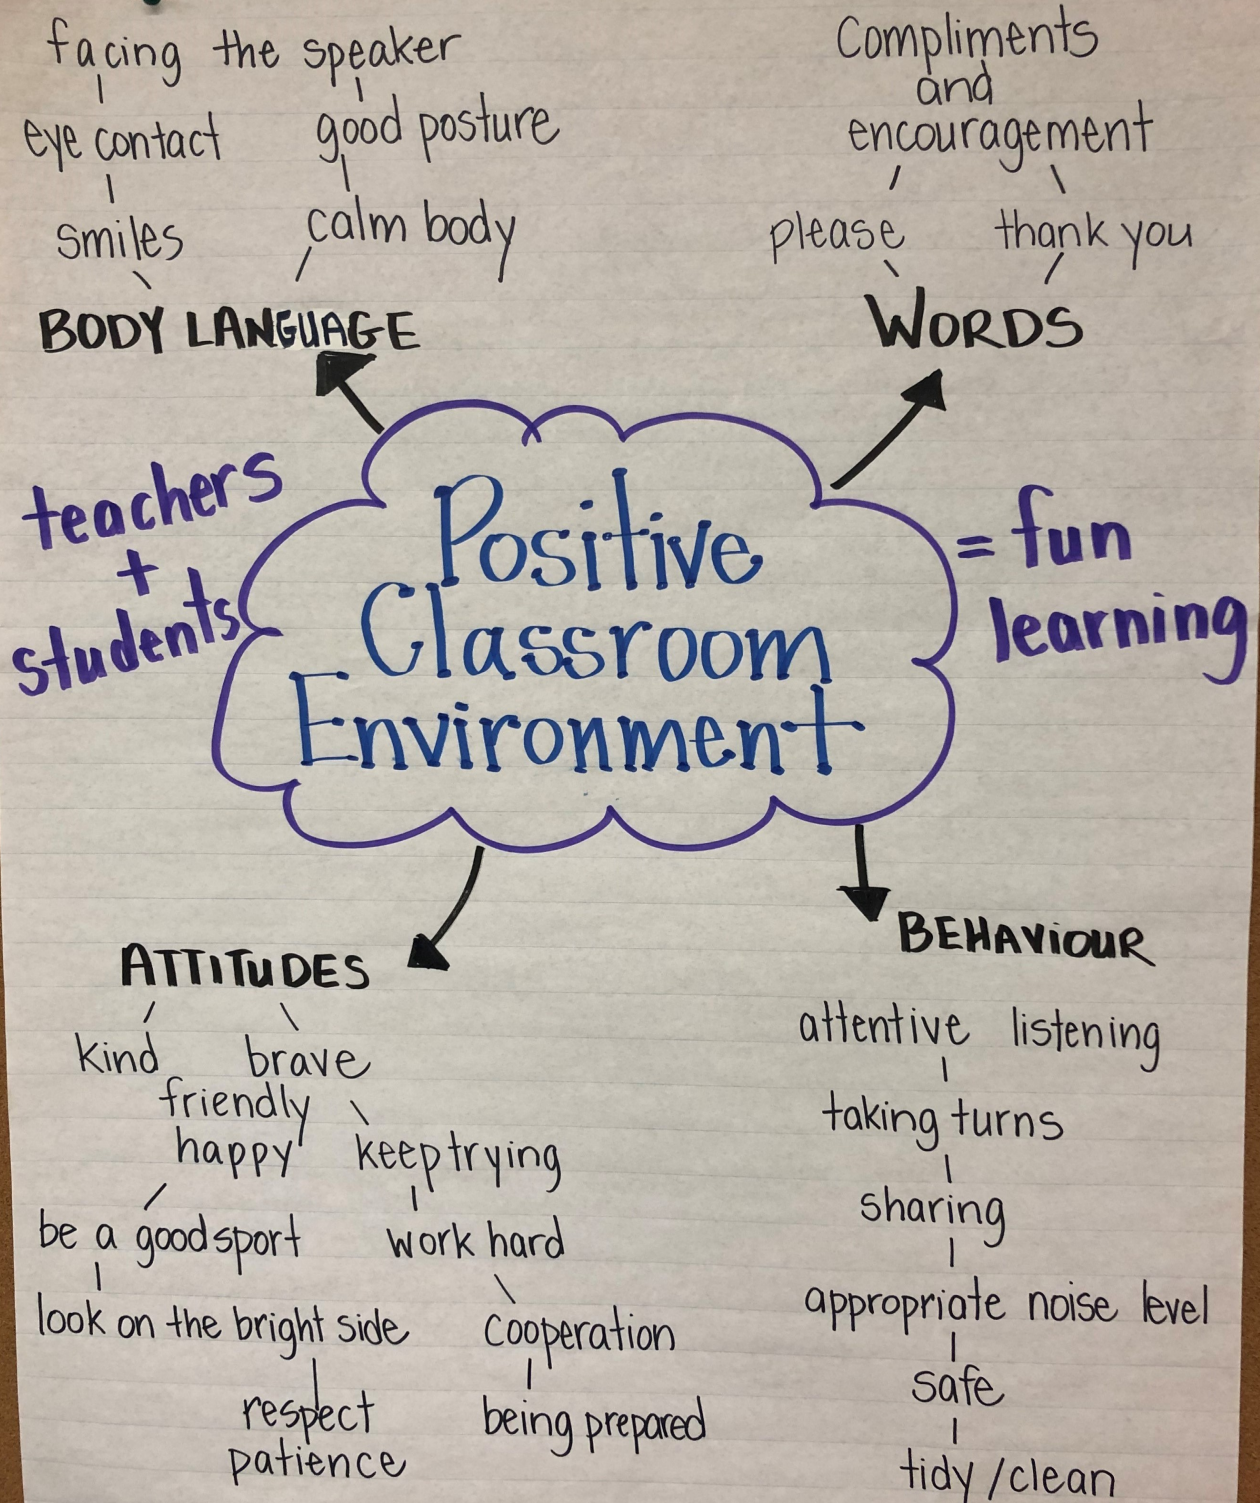 facing the speaker
eye contact
good posture
smiles
calm body
BODY LANGUAGE
Compliments
and
encouragement
please
thank you
WORDS
teachers
+
students
Positive
Classroom
Environment
= fun
learning
ATTITUDES
kind
brave
friendly
happy
keep trying
be a good sport
work hard
look on the bright side
cooperation
respect
patience
being prepared
BEHAVIOUR
attentive listening
taking turns
sharing
appropriate noise level
safe
tidy/clean